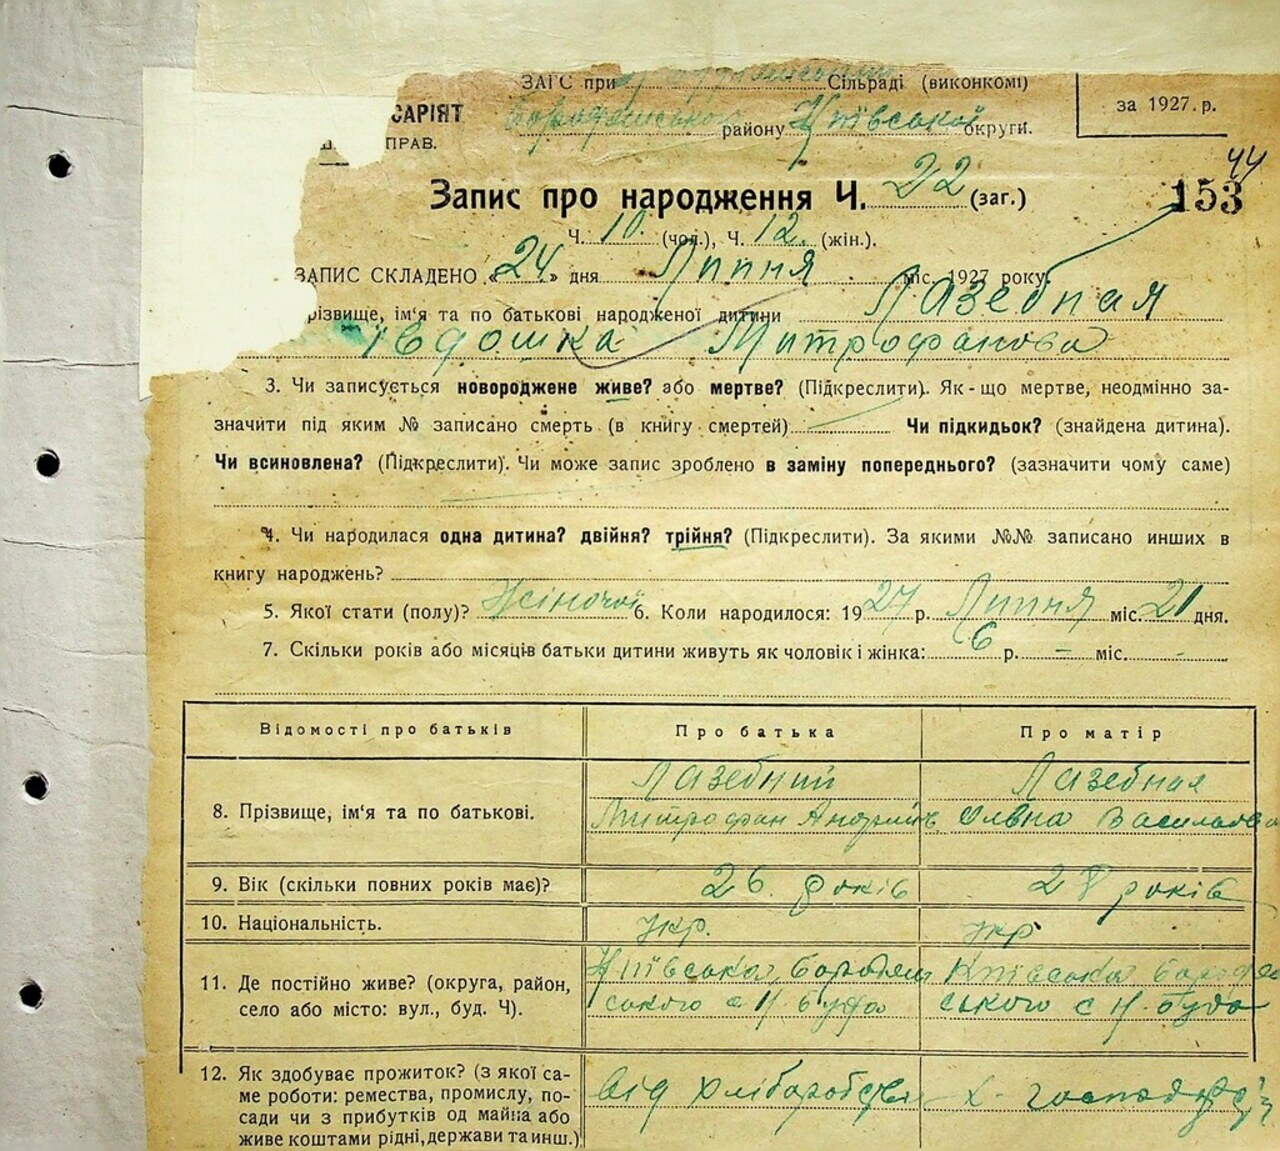 ЗАГС при Сільраді (виконкомі)
за 1927 р.
САРІЯТ
Бородянського району Київської округи.
ПРАВ.
44
Запис про народження Ч. 22 (заг.)
153
Ч. 10. (чол.), Ч. 12. (жін.).
ЗАПИС СКЛАДЕНО «24» дня Липня міс. 1927 року.
різвище, ім'я та по батькові народженої дитини Лазебная
Івдошка Митрофанова
3. Чи записується новороджене живе? або мертве? (Підкреслити). Як-що мертве, неодмінно за-
значити під яким № записано смерть (в книгу смертей) Чи підкидьок? (знайдена дитина).
Чи всиновлена? (Підкреслити). Чи може запис зроблено в заміну попереднього? (зазначити чому саме)
4. Чи народилася одна дитина? двійня? трійня? (Підкреслити). За якими №№ записано инших в
книгу народжень?
5. Якої стати (полу)? Жіночої 6. Коли народилося: 1927 р. Липня міс. 21 дня.
7. Скільки років або місяців батьки дитини живуть як чоловік і жінка: 6 р. – міс. -
Відомості про батьків Про батька Про матір
Лазебний Лазебная
8. Прізвище, ім'я та по батькові. Митрофан Андріїв Василова
9. Вік (скільки повних років має)? 26 років 28 років
10. Національність. укр. укр
11. Де постійно живе? (округа, район, Київська, Бородян Київська Бородян
село або місто: вул., буд. Ч). ського с Н. буда ського с Н. буда
12. Як здобуває прожиток? (з якої са- від хліборобства х. господарці
ме роботи: ремества, промислу, по-
сади чи з прибутків од майна або
живе коштами рідні, держави та инш.)